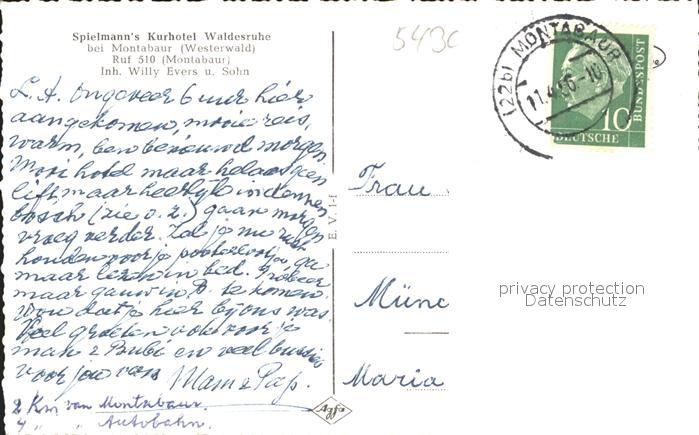 Spielmann's Kurhotel Waldesruhe
bei Montabaur (Westerwald)
Ruf 510 (Montabaur)
Inh. Willy Evers u. Sohn
5430
(22b) MONTABAUR
11.4.56-10
10
DEUTSCHE
BUNDESPOST
L. A. Ongeveer 6 uur hier
aangekomen, mooie reis,
warm, ben benieuwd morgen.
Mooi hotel maar helaas geen
lift, maar heerlijk in dennen
bosch (zie o. z.) gaan morgen
vroeg verder. Zal je me
houden voor je
maar lezen in bed. Probeer
maar gauw in B. te komen.
Wou dat je hier bij ons was
Veel groeten ook voor je
man & Bubi en veel
voor jou van Mam & Pap.
2 Km van Montabaur.
4 " " Autobahn.
E. V. 1-f
Agfa
Frau
Münc
Maria
privacy protection
Datenschutz